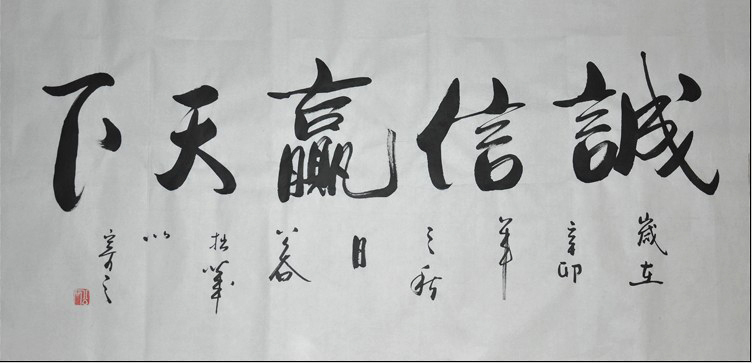 誠信贏天下
歲在
辛卯
年
之秋
日
拙筆
以
寄之